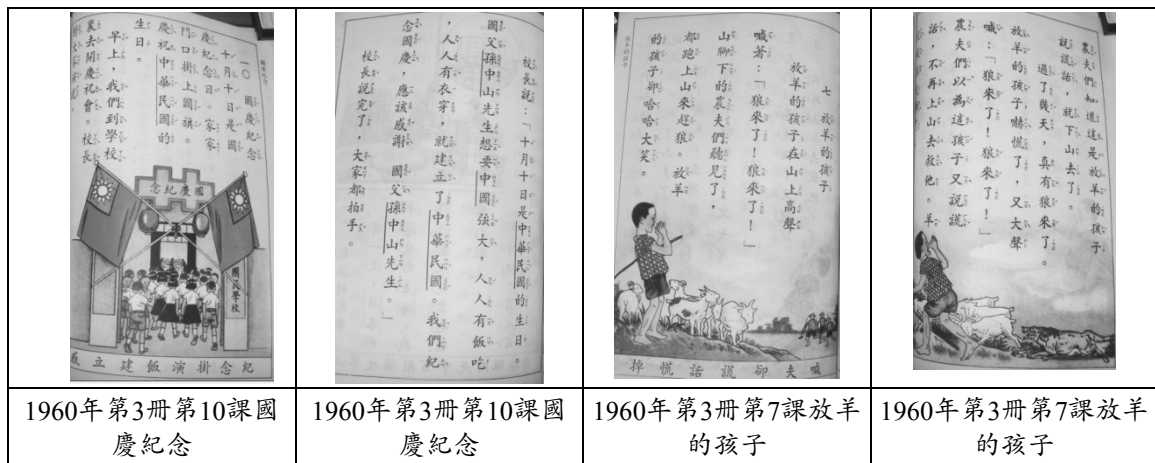 一〇 國慶紀念
十月十日是國
慶紀念日。家家
門口掛上國旗。
慶祝中華民國的
生日。
早上,我們到學校
裏去開慶祝會。校長
國慶紀念
國民學校
紀念掛演飯建立
校長說:「十月十日是中華民國的生日。
國父孫中山先生想要中國強大,人人有飯吃
,人人有衣穿,就建立了中華民國。我們紀
念國慶,應該感謝 國父孫中山先生。」
校長說完了,大家都拍手。
放羊的孩子
七 放羊的孩子
放羊的孩子在山上高聲
喊著:「狼來了!狼來了!」
山腳下的農夫們聽見了,
都跑上山來趕狼。放羊
的孩子卻哈哈大笑。
喊夫卻謊話慌掉
農夫們知道這是放羊的孩子
說謊話,就下山去了。
過了幾天,真有狼來了。
放羊的孩子嚇慌了,又大聲
喊:「狼來了!狼來了!」
農夫們以為這孩子又說謊
話,不再上山去救他。羊
1960年第3冊第10課國
慶紀念
1960年第3冊第10課國
慶紀念
1960年第3冊第7課放羊
的孩子
1960年第3冊第7課放羊
的孩子